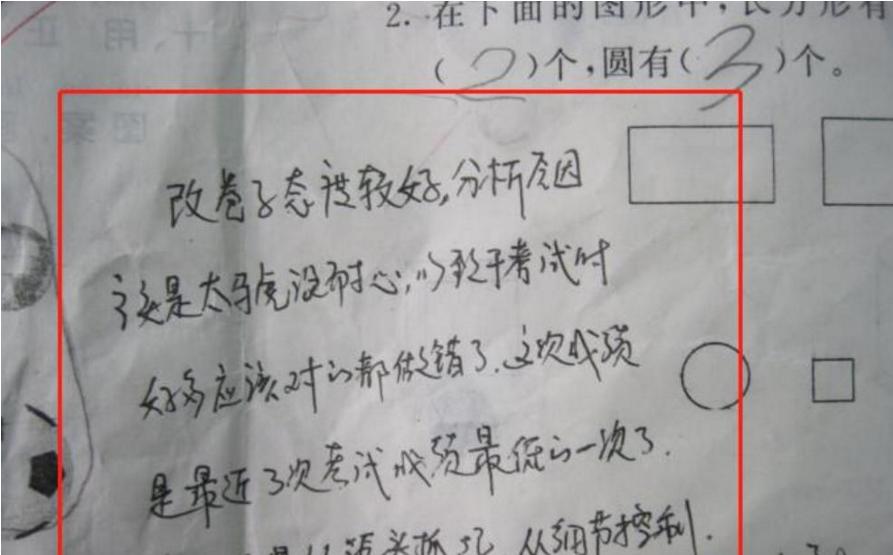 2. 在下面的图形中,长方形有
(2)个,圆有(3)个。
改卷子态度较好,分析原因
该是太马虎没耐心,以致于考试时
好多应该对的都做错了.这次成绩
是最近3次考试成绩最低的一次了.
源头抓起 从细节控制.